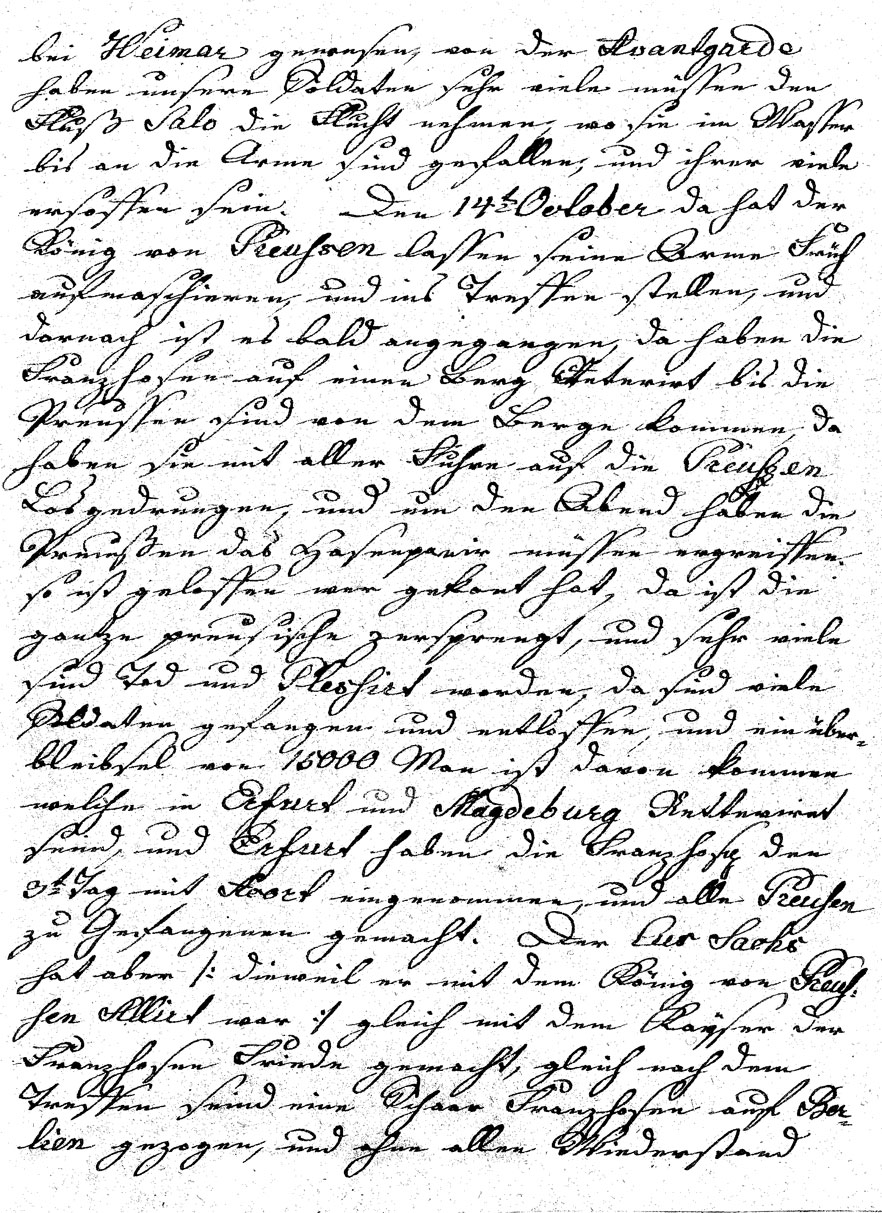 bei Weimar gewesen, von der Avantgarde
haben unsere Soldaten sehr viele müssen den
Fluß Salo die Flucht nehmen, wo sie im Wasser
bis an die Arme sind gefallen, und ihrer viele
ersoffen sein. Den 14t October da hat der
König von Preußsen lassen seine Arme Früh
aufmaschieren, und ins Treffen stellen, und
darnach ist es bald angegangen, da haben die
Franzhosen auf einen Berg bis die
Preussen sind von dem Berge kommen, da
haben sie mit aller Fuhre auf die Preußen
Losgedrungen, und um den Abend haben die
Preußen das Hasenpanir müssen ergreiffen.
so ist geloffen wer gekont hat, da ist die
gantze preusische zersprengt, und sehr viele
sind Tod und Pleshirt worden, da sind viele
Soldaten gefangen und entloffen, und ein über-
bleibsel von 15000 Man ist davon kommen
welche in Erfurt und Magdeburg Retteriret
seind, und Erfurt haben die Franzhosen den
3t Tag mit Acort eingenommen, und alle Preusen
zu Gefangenen gemacht. Der Cur Sachs
hat aber /: dieweil er mit dem König von Preus-
sen Allirt war :/ gleich mit dem Kaÿser der
Franzhosen Friede gemacht, gleich nach dem
Treffen seind eine Schaar Franzhosen auf Ber-
lien gezogen, und ohne allen Wiederstand